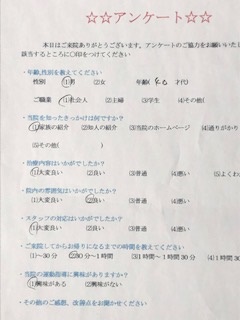 ☆☆アンケート☆☆
本日はご来院ありがとうございます。アンケートのご協力をお願いいたし
該当するところに〇印をつけてください
・年齢,性別を教えてください
性別 (1)男 (2)女 年齢( 40 才代)
ご職業 (1)社会人 (2)主婦 (3)学生 (4)その他(
・当院を知ったきっかけは何ですか?
(1)家族の紹介 (2)知人の紹介 (3)当院のホームページ (4)通りがかり
(5)その他( )
・治療内容はいかがでしたか?
(1)大変良い (2)良い (3)普通 (4)悪い (5)よくわ
・院内の雰囲気はいかがでしたか?
(1)大変良い (2)良い (3)普通 (4)悪い
・スタッフの対応はいかがでしたか?
(1)大変良い (2)良い (3)普通 (4)悪い
・ご来院してからお帰りになるまでの時間を教えてください
(1)~30分 (2)30分~1時間 (3)1時間~1時間30分 (4)1時間
・当院の運動指導に興味がありますか?
(1)興味がある (2)興味がない
・その他のご感想、改善点をお聞かせください